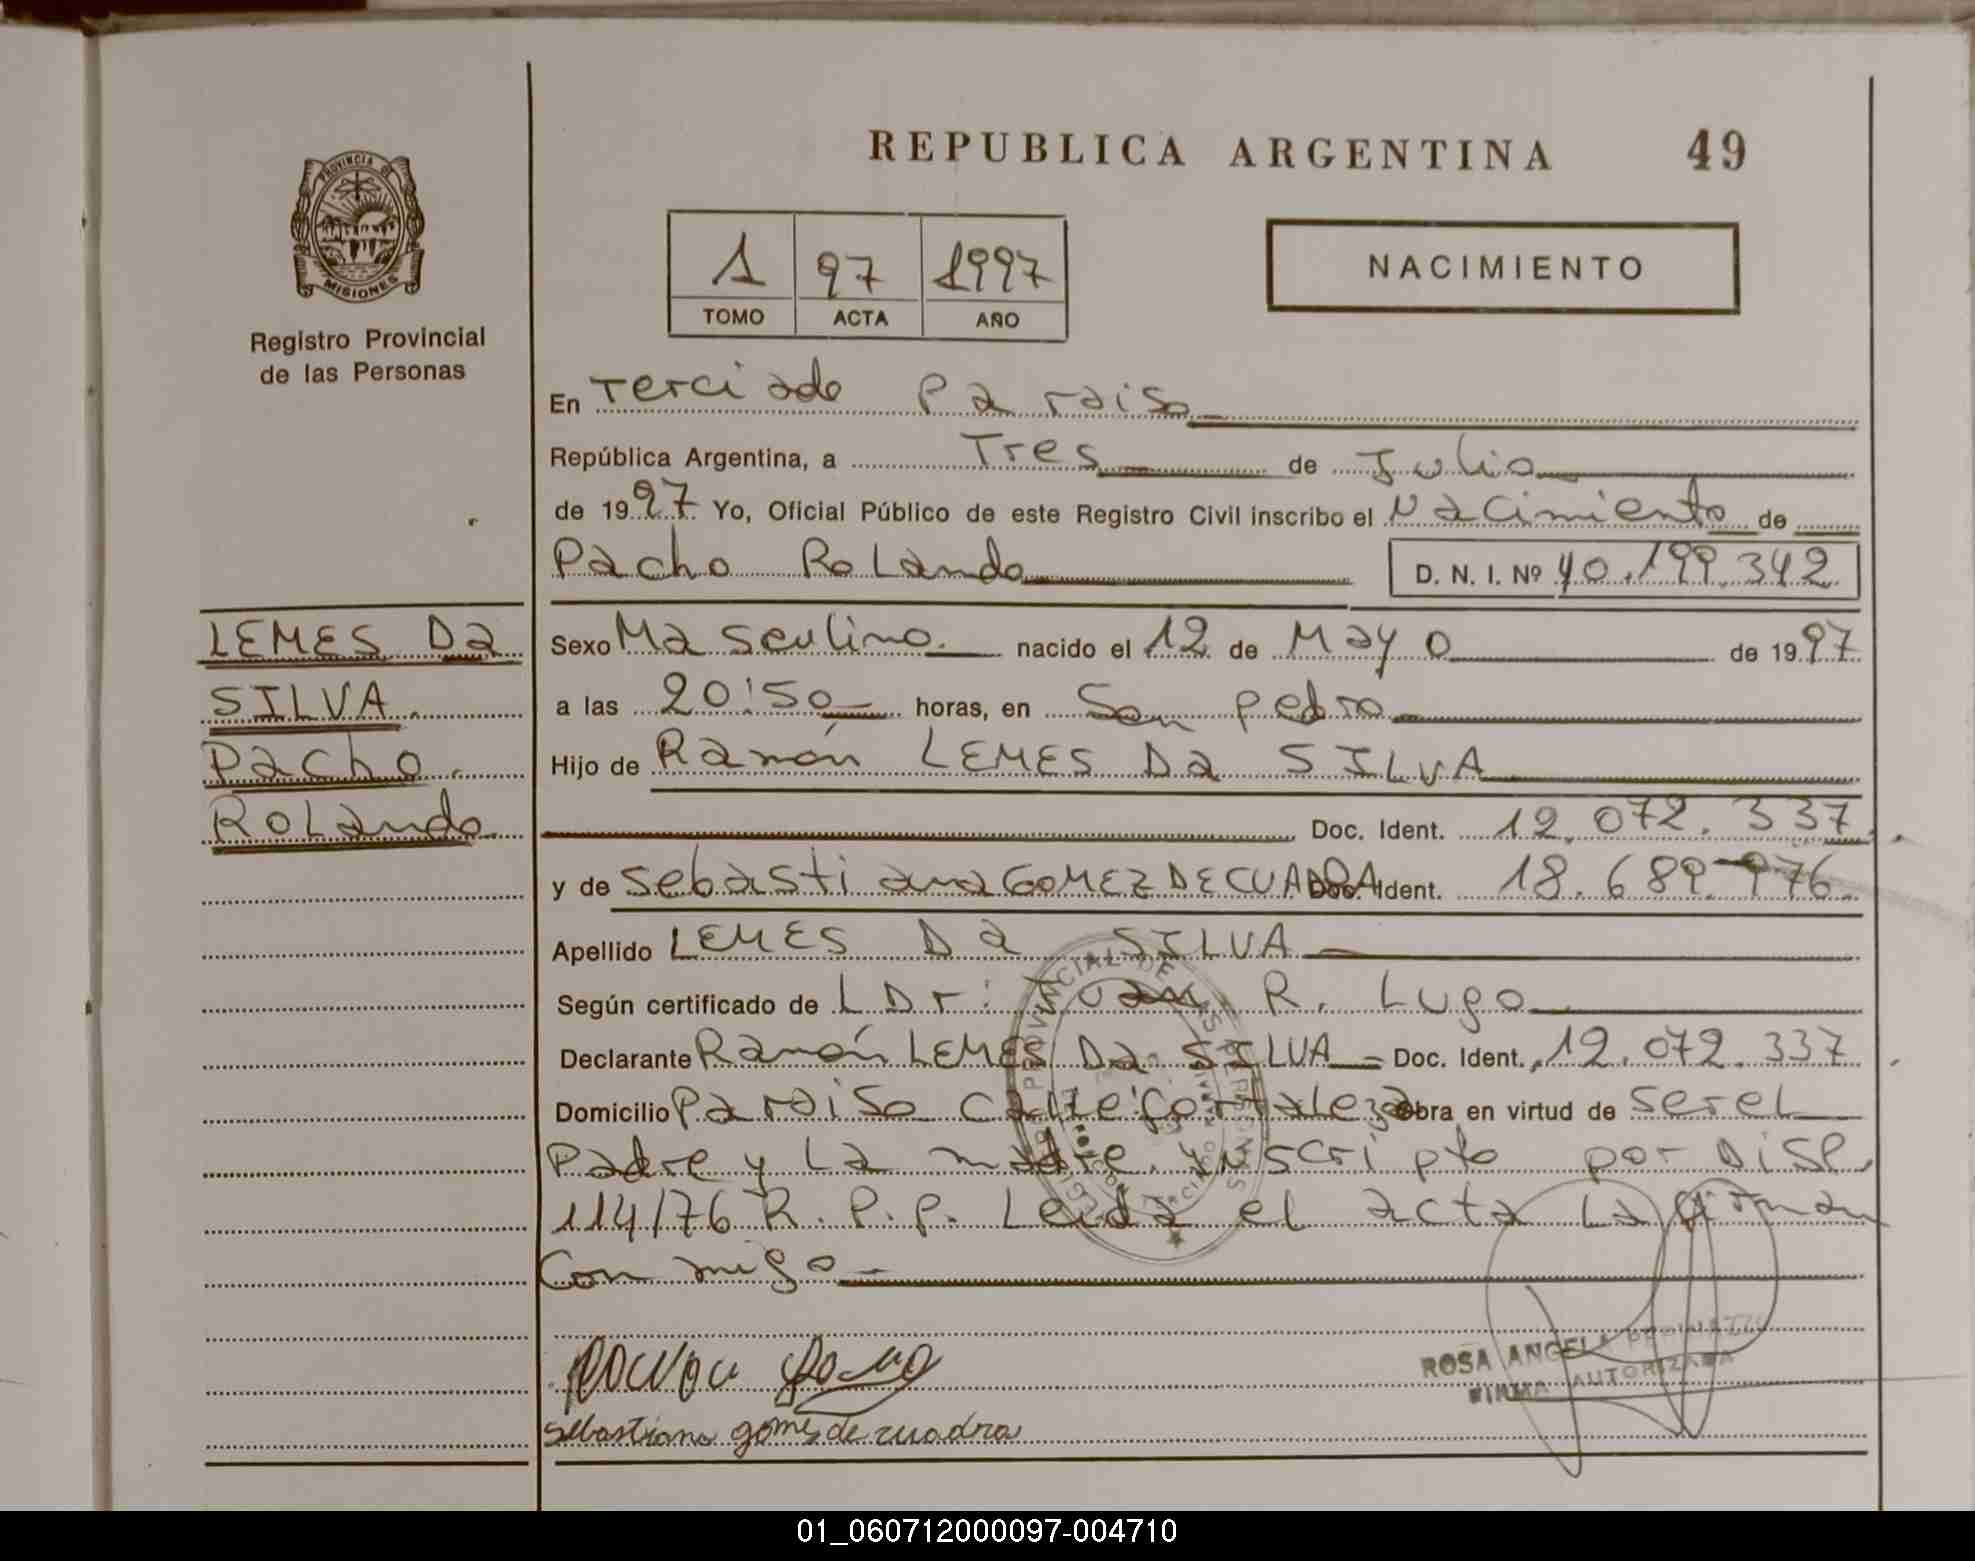 REPUBLICA ARGENTINA 49
PROVINCIA DE
MISIONES
Registro Provincial
de las Personas
1 97 1997
TOMO ACTA AÑO
NACIMIENTO
En Terciado Paraiso
República Argentina, a Tres de Julio
de 1997 Yo, Oficial Público de este Registro Civil inscribo el Nacimiento de
Pacho Rolando D. N. I. Nº 40.199.342
LEMES Da
SILVA.
Pacho.
Rolando
Sexo Masculino. nacido el 12 de Mayo de 1997
a las 20:50 horas, en San pedro
Hijo de Ramón LEMES Da SILVA
Doc. Ident. 12.072.337.
y de Sebastiana GOMEZ DE CUADRA Doc. Ident. 18.689.976.
Apellido LEMES Da SILVA
Según certificado de L Dr: Juan R. Lugo
Declarante Ramón LEMES Da SILVA Doc. Ident. 12.072.337.
Domicilio Paraiso calle fortaleza Obra en virtud de ser el
Padre y La madre. Inscripto por Disp.
114/76 R. P. P. Leida el acta La firman
Con migo
ROSA ANGELA
FIRMA AUTORIZADA
Sebastiana gomes de cuadra
01_060712000097-004710